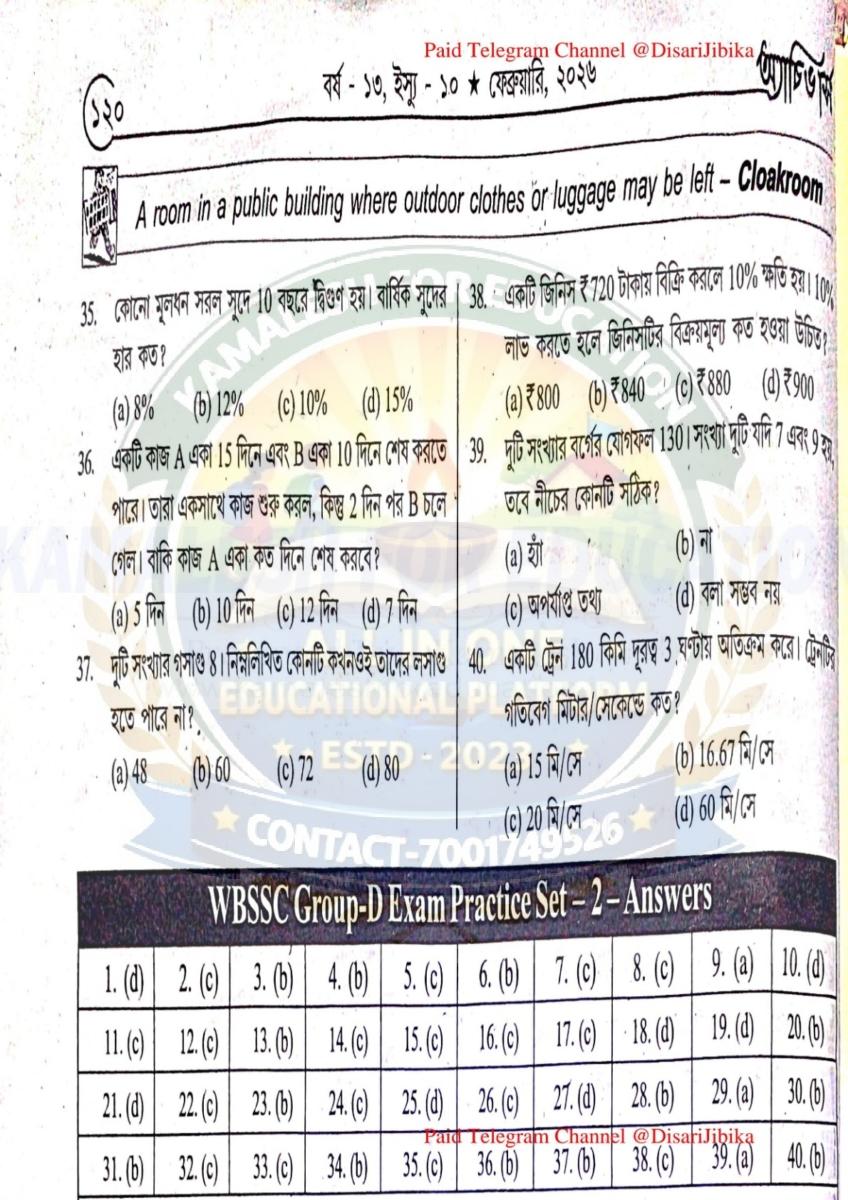 Paid Telegram Channel @DisariJibika
বর্ষ - ১৩, ইস্যু - ১০ ★ ফেব্রুয়ারি, ২০২৬
১২০
A room in a public building where outdoor clothes or luggage may be left – Cloakroom
35. কোনো মূলধন সরল সুদে 10 বছরে দ্বিগুণ হয়। বার্ষিক সুদের
হার কত?
(a) 8% (b) 12% (c) 10% (d) 15%
36. একটি কাজ A একা 15 দিনে এবং B একা 10 দিনে শেষ করতে
পারে। তারা একসাথে কাজ শুরু করল, কিন্তু 2 দিন পর B চলে
গেল। বাকি কাজ A একা কত দিনে শেষ করবে?
(a) 5 দিন (b) 10 দিন (c) 12 দিন (d) 7 দিন
37. দুটি সংখ্যার গসাগু 8। নিম্নলিখিত কোনটি কখনওই তাদের লসাগু
হতে পারে না?
(a) 48 (b) 60 (c) 72 (d) 80
38. একটি জিনিস ₹720 টাকায় বিক্রি করলে 10% ক্ষতি হয়। 10%
লাভ করতে হলে জিনিসটির বিক্রয়মূল্য কত হওয়া উচিত?
(a) ₹800 (b) ₹840 (c) ₹880 (d) ₹900
39. দুটি সংখ্যার বর্গের যোগফল 130। সংখ্যা দুটি যদি 7 এবং 9 হয়,
তবে নীচের কোনটি সঠিক?
(a) হ্যাঁ (b) না
(c) অপর্যাপ্ত তথ্য (d) বলা সম্ভব নয়
40. একটি ট্রেন 180 কিমি দূরত্ব 3 ঘণ্টায় অতিক্রম করে। ট্রেনটির
গতিবেগ মিটার/সেকেন্ডে কত?
(a) 15 মি/সে (b) 16.67 মি/সে
(c) 20 মি/সে (d) 60 মি/সে
KAMALESH FOR EDUCATION
KAMALESH FOR EDUCATION
ALL IN ONE
EDUCATIONAL PLATFORM
ESTD - 2023
CONTACT-7001749526
WBSSC Group-D Exam Practice Set – 2 – Answers
1. (d) 2. (c) 3. (b) 4. (b) 5. (c) 6. (b) 7. (c) 8. (c) 9. (a) 10. (d)
11. (c) 12. (c) 13. (b) 14. (c) 15. (c) 16. (c) 17. (c) 18. (d) 19. (d) 20. (b)
21. (d) 22. (c) 23. (b) 24. (c) 25. (d) 26. (c) 27. (d) 28. (b) 29. (a) 30. (b)
Paid Telegram Channel @DisariJibika
31. (b) 32. (c) 33. (c) 34. (b) 35. (c) 36. (b) 37. (b) 38. (c) 39. (a) 40. (b)